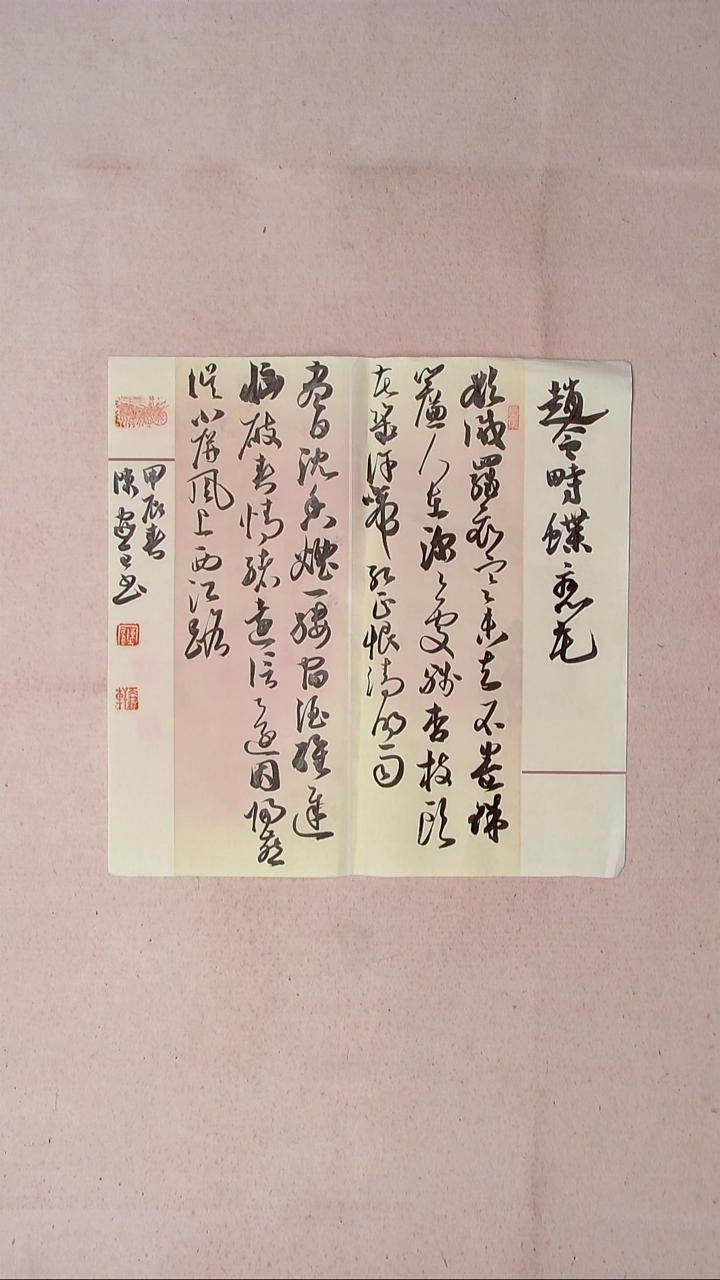 趙令畤蝶戀花
欲減羅衣寒未去不卷珠
簾人在深深處殘杏枝頭
花幾許啼紅正恨清明雨
盡日沈香煙一縷宿酒醒遲
惱破春情緒遠信還因歸燕
誤小屏風上西江路
甲辰春
陳書